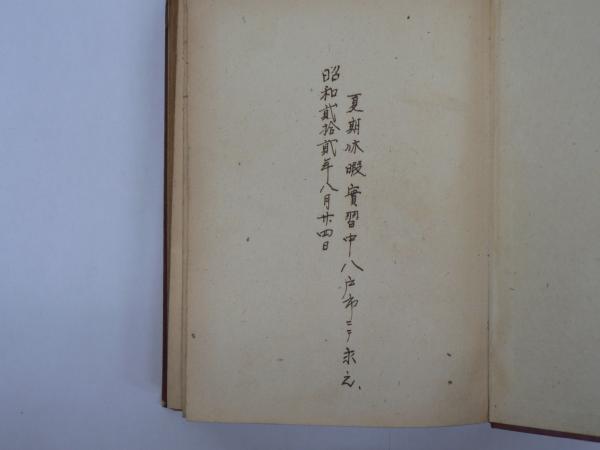 夏期休暇實習中八戸市ニテ求之、
昭和貳拾貳年八月廿四日